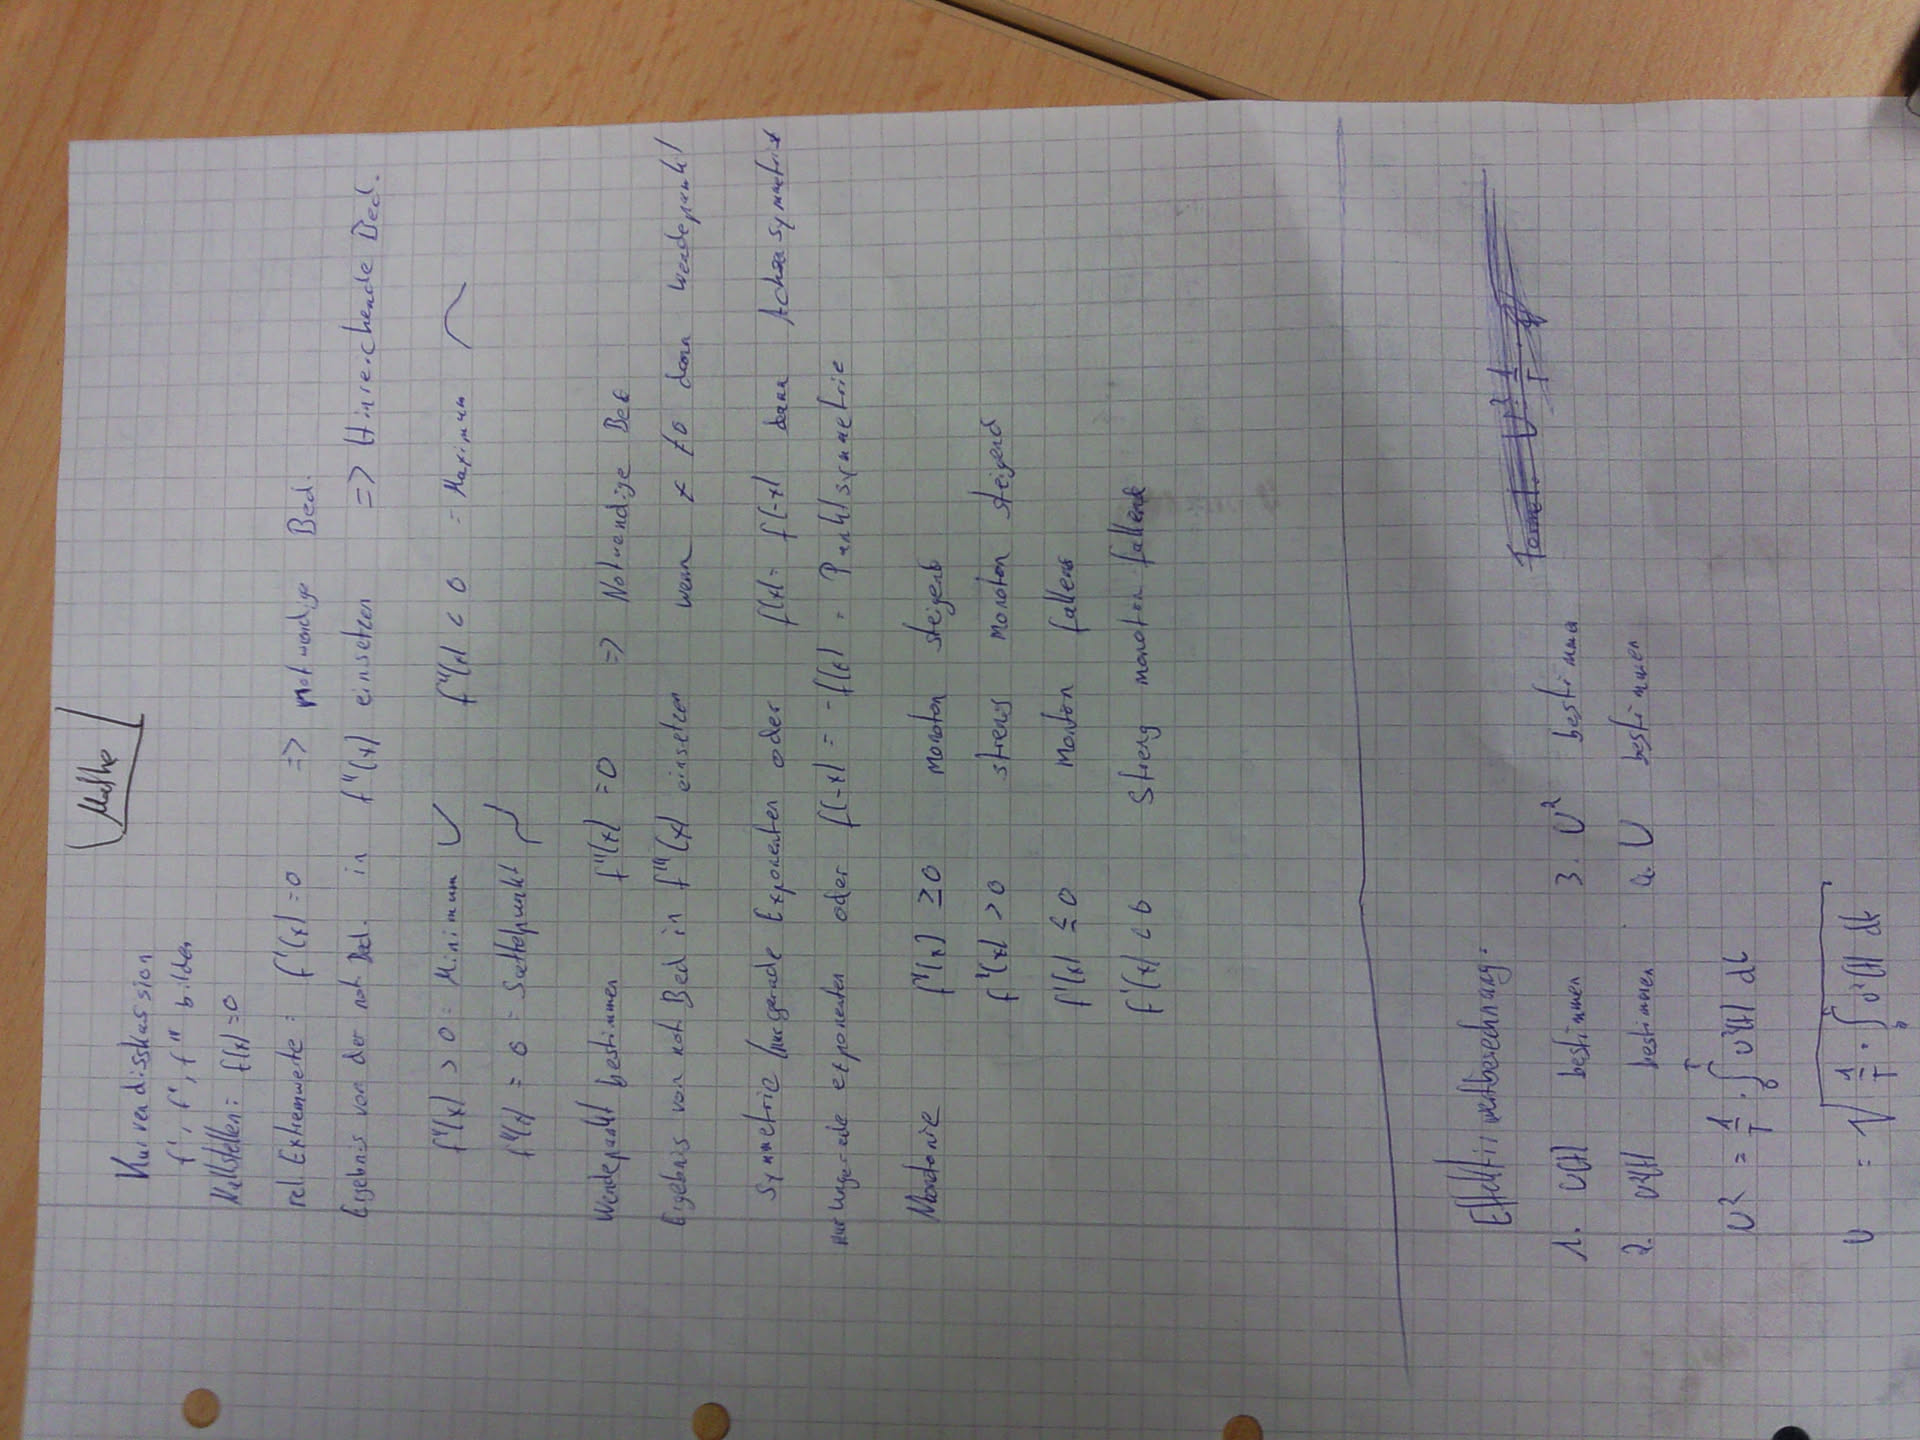 Mathe
Kurvendisskussion
f', f'', f''' bilden
Nullstellen: f(x)=0
rel. Extremwerte: f'(x)=0 => notwendige Bed.
Ergebnis von der not. Bed. in f''(x) einsetzen => Hinreichende Bed.
f''(x) > 0 = Minimum f''(x) < 0 = Maximum
f''(x) = 0 = Sattelpunkt
Wendepunkt bestimmen f''(x) = 0 => Notwendige Bed
Ergebnis von not Bed in f'''(x) einsetzen wenn x ≠0 dann Wendepunkt
Symmetrie nur gerade Exponenten oder f(x)= f(-x) dann Achsensymmetrie
nur ungerade exponenten oder f(-x) = -f(x) = Punktsymmetrie
Monotonie f'(x) ≥0 monoton steigend
f'(x) >0 streng monoton steigend
f'(x) ≤ 0 monoton fallend
f'(x) < 0 Streng monoton fallend
Effektivwertberechnung:
1. U(t) bestimmen 3. U² bestimmen
2. U²(t) bestimmen 4. U bestimmen
U² = 1/T · ∫₀ᵀ U²(t) dt
U = √(1/T · ∫₀ᵀ U²(t) dt)